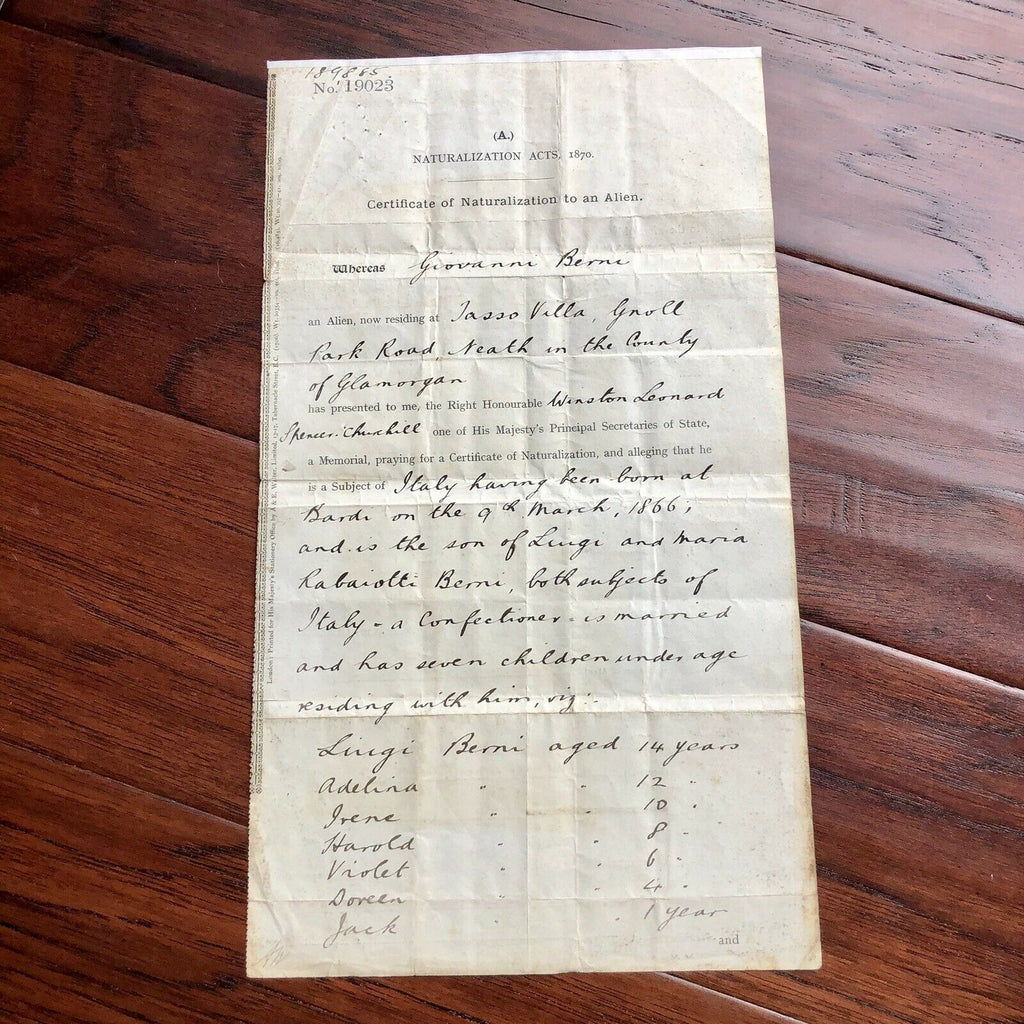 189885
No. 19023
(A.)
NATURALIZATION ACTS, 1870.
Certificate of Naturalization to an Alien.
Whereas Giovanni Berni
an Alien, now residing at Tasso Villa, Gnoll
Park Road, Neath in the County
of Glamorgan
has presented to me, the Right Honourable Winston Leonard
Spencer-Churchill one of His Majesty's Principal Secretaries of State,
a Memorial, praying for a Certificate of Naturalization, and alleging that he
is a Subject of Italy having been born at
Bardi on the 9th March, 1866;
and is the son of Luigi and Maria
Rabaiotti Berni, both subjects of
Italy - a Confectioner - is married
and has seven children under age
residing with him, viz:-
Luigi Berni aged 14 years
Adelina " " 12 "
Irene " " 10 "
Harold " " 8 "
Violet " " 6 "
Doreen " " 4 "
Jack " " 1 year
and
London: Printed for His Majesty's Stationery Office by A & E. Walter, Limited, 13-17, Tabernacle Street, E.C.